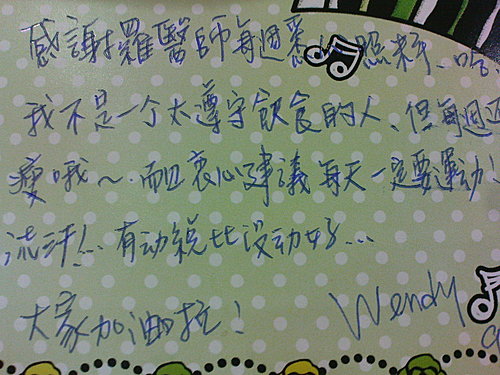 感謝羅醫師每週悉心照料、哈
我不是一个太遵守飲食的人、但每週還
瘦哦～而且衷心建議每天一定要運动！
流汗！有动總比沒动好…
大家加油拉！ Wendy